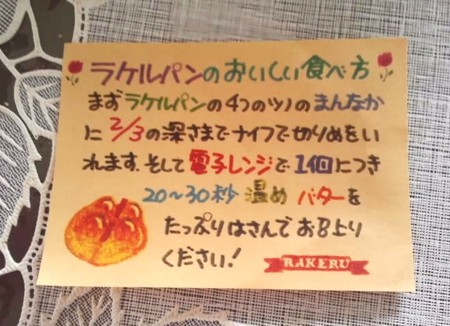 ラケルパンのおいしい食べ方
まずラケルパンの4つのツノのまんなか
に2/3の深さまでナイフで切りめをい
れます.そして電子レンジで1個につき
20～30秒 温め バターを
たっぷりはさんでお召上り
ください!
RAKERU